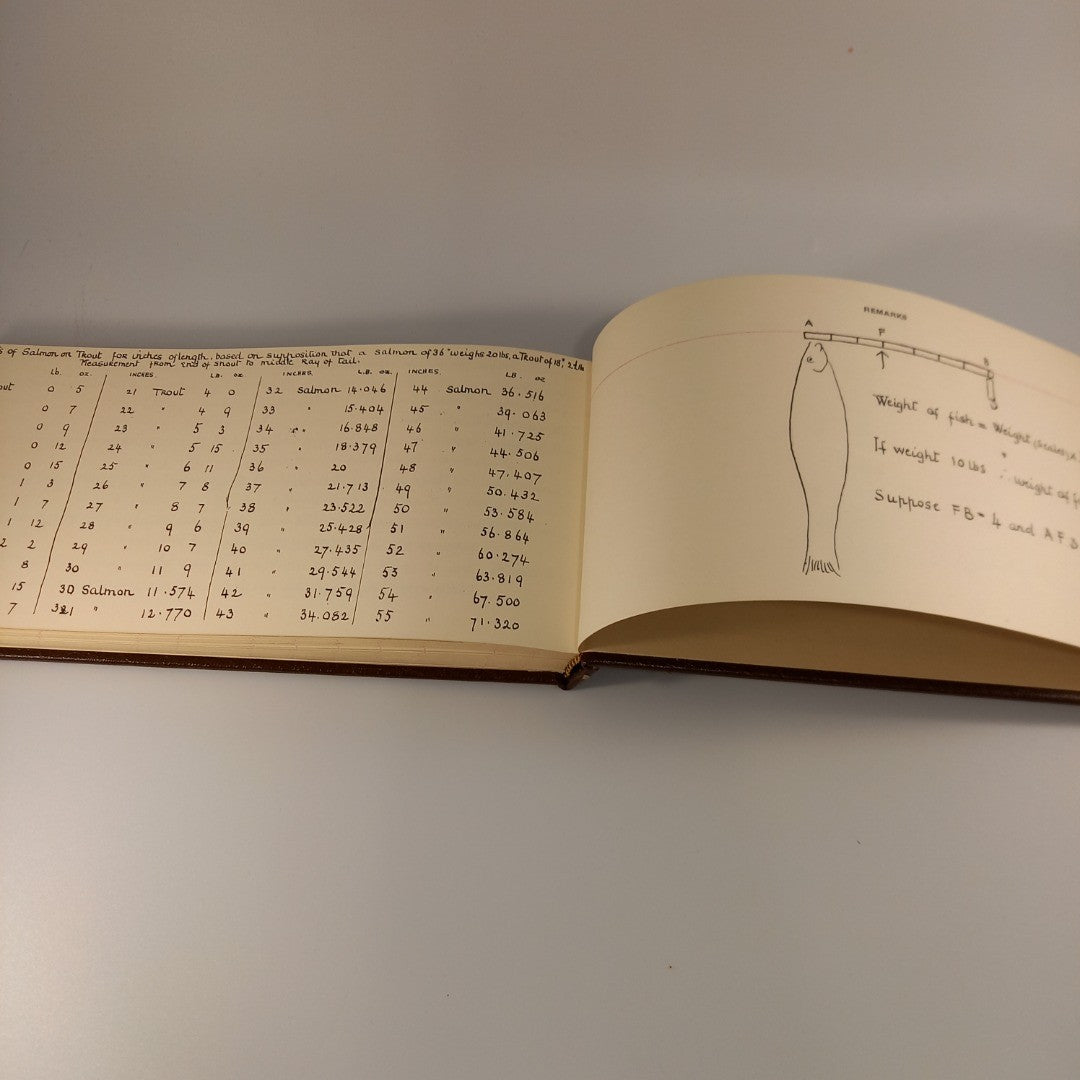 of Salmon or Trout for inches of length, based on supposition that a Salmon of 36" weighs 20 lbs, a Trout of 18", 2 lbs
Measurement from end of snout to middle Ray of tail.
LB. OZ. INCHES. LB. OZ INCHES. LB. OZ. INCHES. LB. OZ
0 5 21 Trout 4 0 32 Salmon 14.046 44 Salmon 36.516
0 7 22 " 4 9 33 " 15.404 45 " 39.063
0 9 23 " 5 3 34 " 16.848 46 " 41.725
0 12 24 " 5 15 35 " 18.379 47 " 44.506
0 15 25 " 6 11 36 " 20 48 " 47.407
1 3 26 " 7 8 37 " 21.713 49 " 50.432
1 7 27 " 8 7 38 " 23.522 50 " 53.584
1 12 28 " 9 6 39 " 25.428 51 " 56.864
2 2 29 " 10 7 40 " 27.435 52 " 60.274
8 30 " 11 9 41 " 29.544 53 " 63.819
15 30 Salmon 11.574 42 " 31.759 54 " 67.500
7 31 " 12.770 43 " 34.082 55 " 71.320
REMARKS
A F B
Weight of fish = Weight (Scales) x
"
If weight 10 lbs ∴ weight of
Suppose FB = 4 and AF 3